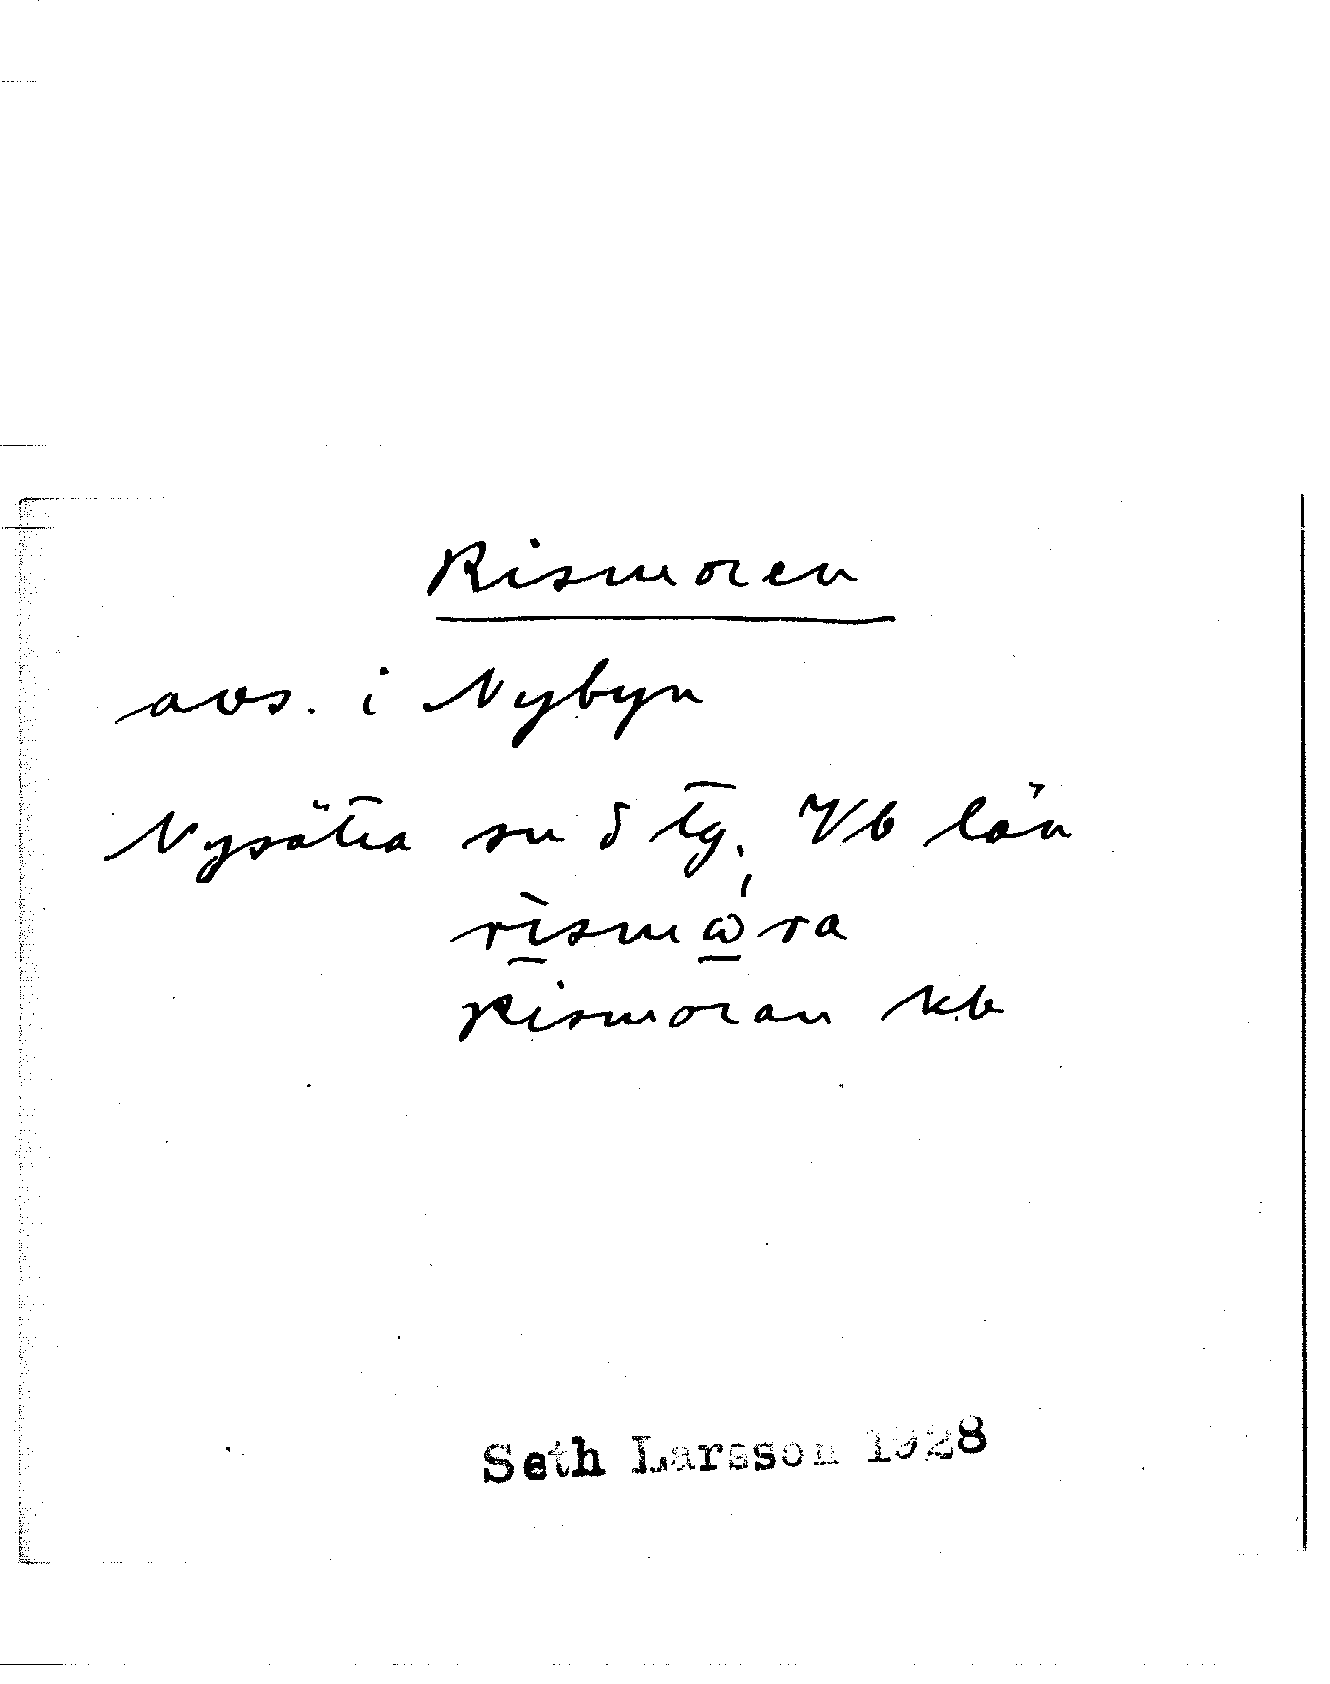 Rismoren
avs. i Nybyn
Nysätra sn S tg. Vb län
rı̀smώ̲ra
Rismoran kb
Seth Larsson 1928